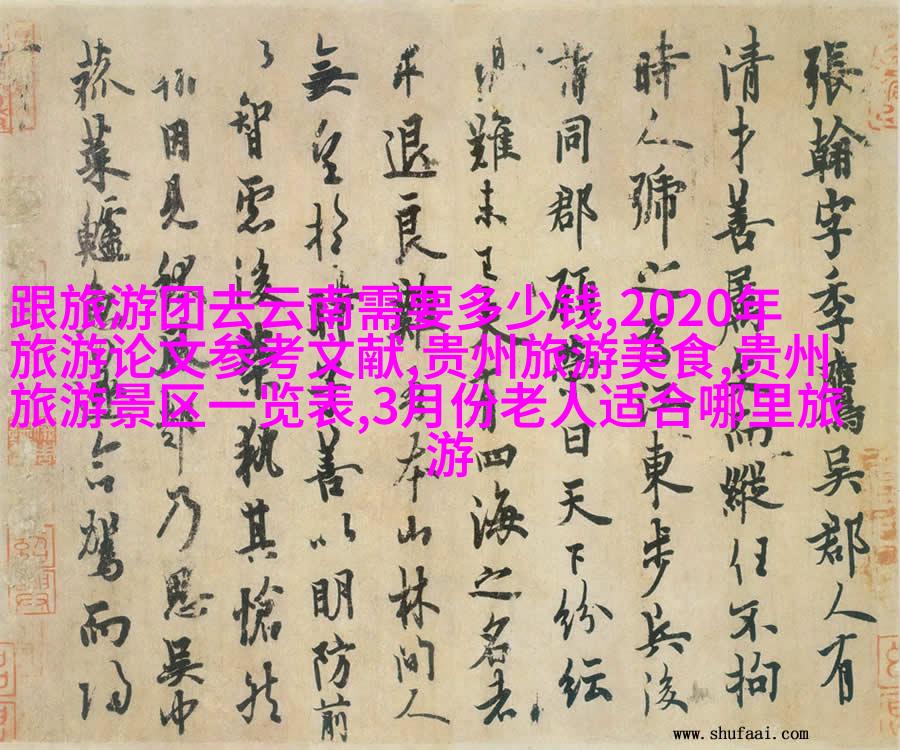 張翰字季鷹吳郡人有
清才善屬文而縱任不拘
時人號之為江東步兵後
同郡顧榮曰天下紛紜
難未已夫有四海之名者
求退良難吾本山林間人
無望於時子善以明防前
以智慮後榮執其愴然
翰因見秋風起乃思吳中
菰菜鱸魚遂命駕而歸
跟旅游团去云南需要多少钱,2020年
旅游论文参考文献,贵州旅游美食,贵州
旅游景区一览表,3月份老人适合哪里旅
游
www.shufaai.com